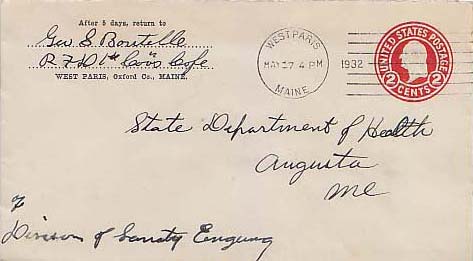 After 5 days, return to
Geo S Boutelle
R F D 1
WEST PARIS, Oxford Co., MAINE.
WEST PARIS
MAY 27 4 PM
MAINE
1932
UNITED STATES POSTAGE
2 2
CENTS
State Department of Health
Augusta
Me
%
Division of Sanity Engung